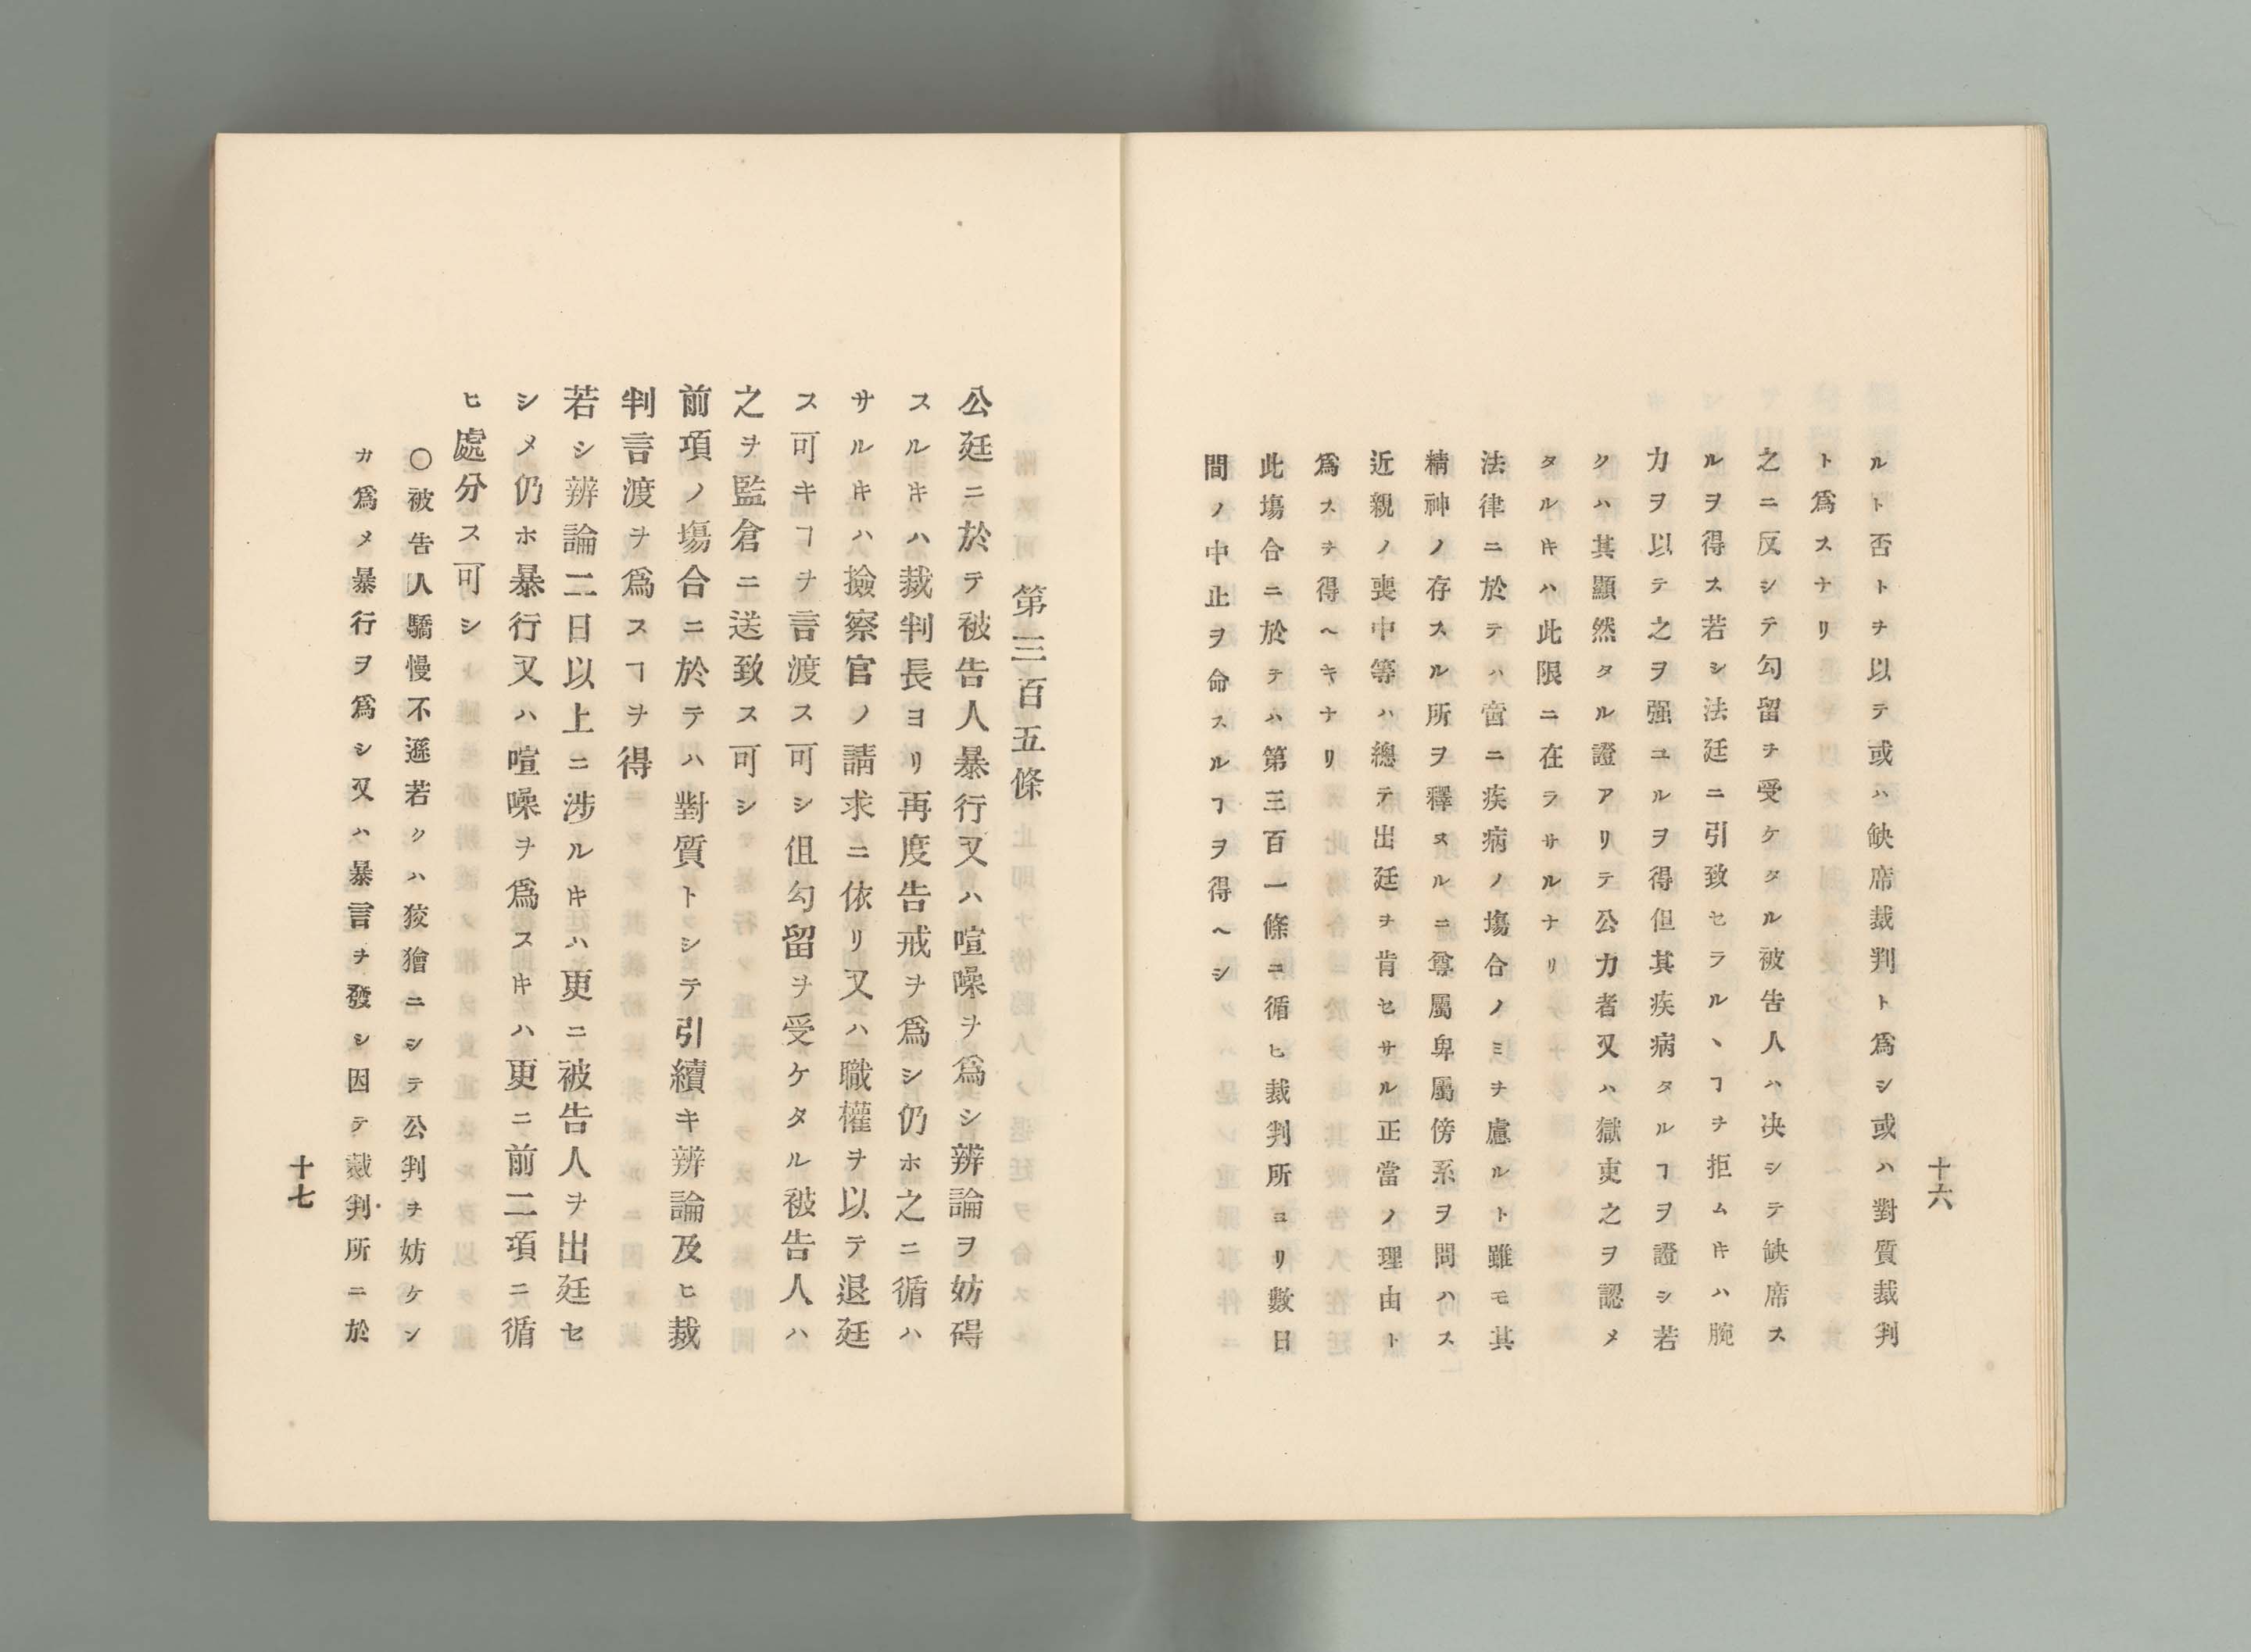 十六
ルト否トヲ以テ或ハ缺席裁判ト爲シ或ハ對質裁判
ト爲スナリ
之ニ反シテ勾留ヲ受ケタル被告人ハ决シテ缺席ス
ルヲ得ス若シ法廷ニ引致セラルヽヿヲ拒ムキハ腕
力ヲ以テ之ヲ强ユルヲ得但其疾病タルヿヲ證シ若
クハ其顯然タル證アリテ公力者又ハ獄吏之ヲ認メ
タルキハ此限ニ在ラサルナリ
法律ニ於テハ啻ニ疾病ノ塲合ノミヲ慮ルト雖モ其
精神ノ存スル所ヲ釋ヌルニ尊屬卑屬傍系ヲ問ハス
近親ノ喪中等ハ總テ出廷ヲ肯セサル正當ノ理由ト
爲スヲ得ヘキナリ
此塲合ニ於テハ第三百一條ニ循ヒ裁判所ヨリ數日
間ノ中止ヲ命スルヿヲ得ヘシ
第三百五條
公廷ニ於テ被告人暴行又ハ喧噪ヲ爲シ辨論ヲ妨碍
スルキハ裁判長ヨリ再度告戒ヲ爲シ仍ホ之ニ循ハ
サルキハ撿察官ノ請求ニ依リ又ハ職權ヲ以テ退廷
ス可キヿヲ言渡ス可シ但勾留ヲ受ケタル被告人ハ
之ヲ監倉ニ送致ス可シ
前項ノ塲合ニ於テハ對質トシテ引續キ辨論及ヒ裁
判言渡ヲ爲スヿヲ得
若シ辨論二日以上ニ涉ルキハ更ニ被告人ヲ出廷セ
シメ仍ホ暴行又ハ喧噪ヲ爲スキハ更ニ前二項ニ循
ヒ處分ス可シ
○被告人驕慢不遜若クハ狡獪ニシテ公判ヲ妨ケン
カ爲メ暴行ヲ爲シ又ハ暴言ヲ發シ因テ裁判所ニ於
十七